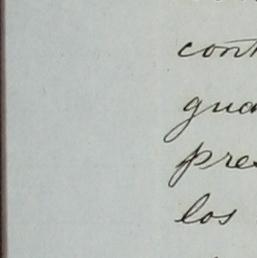 cont
gua
pre
los